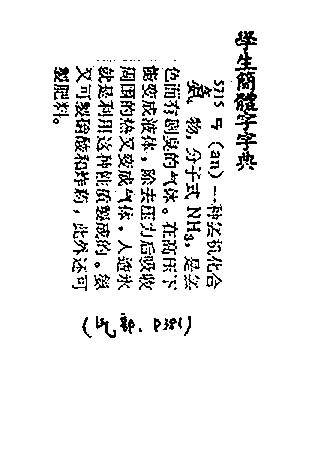 學生簡體字字典
5715 (an) 一种无机化合
氨 物,分子式 NH3,是无
色而有剧臭的气体。在高压下
能变成液体,除去压力后吸收
周围的热又变成气体。人造冰
就是利用这种性质製成的。氨
又可製硝酸和炸药,此外还可
製肥料。
(气部, p381)